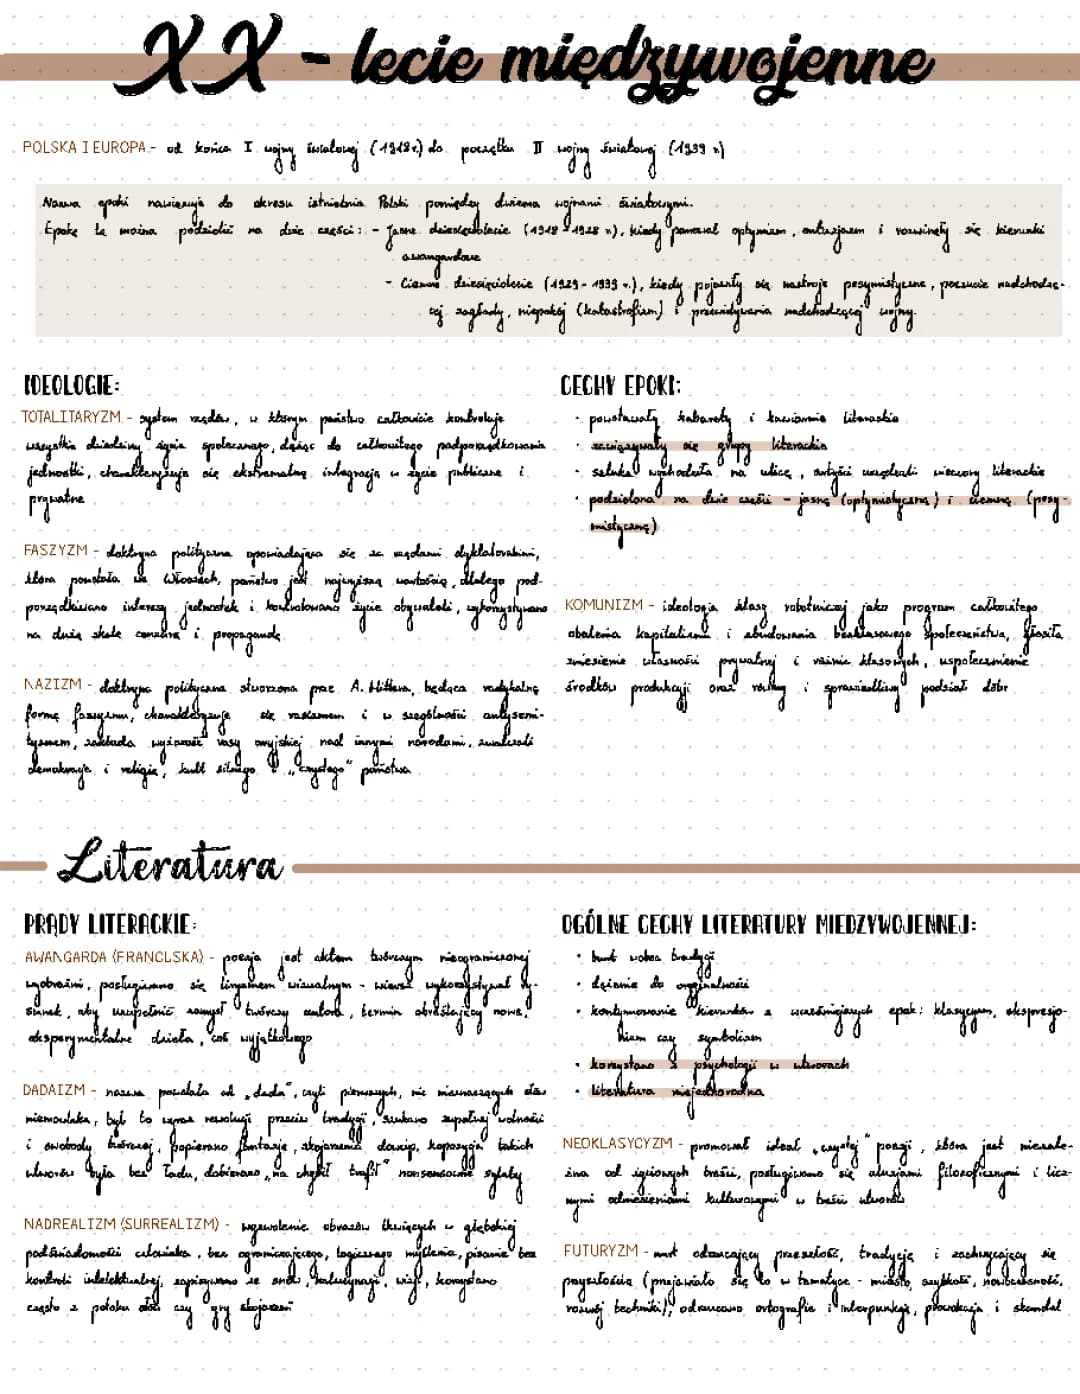 XX - lecie międzywojenne
POLSKA I EUROPA - od końca I wojny światowej (1918 r.) do początku II wojny światowej (1939 r.)
Nazwa epoki nawiązuje do okresu istnienia Polski pomiędzy dwiema wojnami światowymi.
Epokę tę można podzielić na dwie części: - Jasne dziesięciolecie (1918 - 1928 r.), kiedy panował optymizm, entuzjazm i rozwinęły się kierunki
awangardowe
- Ciemne dziesięciolecie (1929 - 1939 r.), kiedy pojawiły się nastroje pesymistyczne, poczucie nadchodzą-
cej zagłady, niepokój (katastrofizm) i przewidywania nadchodzącej wojny.
IDEOLOGIE:
TOTALITARYZM - system rządów, w którym państwo całkowicie kontroluje
wszystkie dziedziny życia społecznego, dążąc do całkowitego podporządkowania
jednostki, charakteryzuje się ekstremalną integracją w życie publiczne i
prywatne
FASZYZM - doktryna polityczna opowiadająca się za rządami dyktatorskimi,
która powstała we Włoszech, państwo jest najwyższą wartością, dlatego pod-
porządkowano interesy jednostek i kontrolowano życie obywateli, wykorzystywano
na dużą skalę cenzurę i propagandę
NAZIZM - doktryna polityczna stworzona prze A. Hitlera, będąca radykalną
formą faszyzmu, charakteryzuje się rasizmem i w szególności antysemi-
tyzmem, zakłada wyższość rasy aryjskiej nad innymi narodami, zwalczali
demokrację i religię, kult silnego i „czystego" państwa
CECHY EPOKI:
· powstawały kabarety i kawiarnie literackie
· zawiązywały się grupy literackie
· sztuka wychodziła na ulicę, artyści urządzali wieczory literackie
· podzielona na dwie części - jasną (optymistyczną) i ciemną (pesy-
mistyczną)
KOMUNIZM - ideologia klasy robotniczej jako program całkowitego
obalenia kapitalizmu i zbudowania bezklasowego społeczeństwa, głosiła
zniesienie własności prywatnej i różnic klasowych, uspołecznienie
środków produkcji oraz równy i sprawiedliwy podział dóbr
Literatura
PRĄDY LITERACKIE:
AWANGARDA (FRANCUSKA) - poezja jest aktem twórczym nieograniczonej
wyobraźni, posługiwano się liryzmem wizualnym - wiersz wykorzystywał ry-
sunek, aby uzupełnić zamysł twórczy autora, termin określający nowe,
eksperymentalne dzieła, coś wyjątkowego
DADAIZM - nazwa powstała od „dada", czyli pierwszych, nic nieznaczących słów
niemowlaka, był to wyraz rewolucji przeciw tradycji, szukano zupełnej wolności
i swobody twórczej, popierano fantazję, skojarzenia, dowcip, kopozycja takich
utworów była bez ładu, dobierano „na chybił trafił" nonsensowne sylaby
NADREALIZM (SURREALIZM) - wyzwolenie obrazów tkwiących w głębokiej
podświadomości człowieka, bez ograniczającego, logicznego myślenia, pisanie bez
kontroli intelektualnej, zapisywano ze snów, halucynacji, wizji, korzystano
często z potoku słów czy gry skojarzeń
OGÓLNE CECHY LITERATURY MIEDZYWOJENNEJ:
· bunt wobec tradycji
· dążenie do oryginalności
· kontynuowanie kierunków z wcześniejszych epok: klasycyzm, ekspresjo-
nizm czy symbolizm
· korzystano z psychologii w utworach
· literatura niejednorodna
NEOKLASYCYZM - promował ideał „czystej" poezji, która jest niezale-
żna od życiowych treści, posługiwano się aluzjami filozoficznymi i licz-
nymi odniesieniami kulturowymi w treści utworów
FUTURYZM - nurt odrzucający przeszłość, tradycję i zachwycający się
przyszłością (przejawiało się to w tematyce - miasto, szybkość, nowoczesność,
rozwój techniki), odrzucano ortografię i interpunkcję, prowokacja i skandal